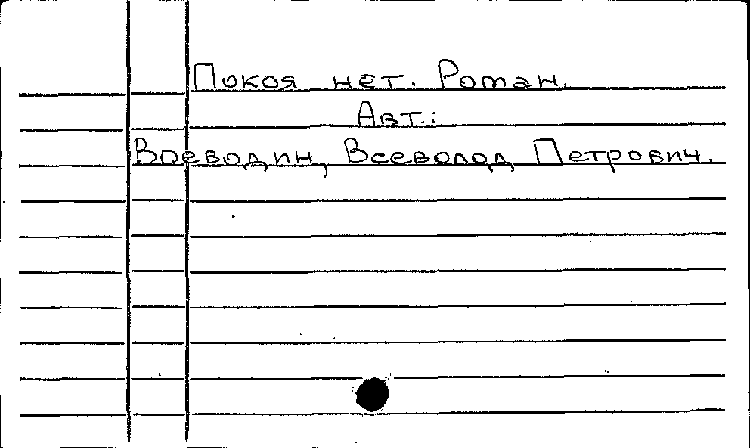 Покоя нет. Роман.
Авт.:
Воеводин, Всеволод Петрович.